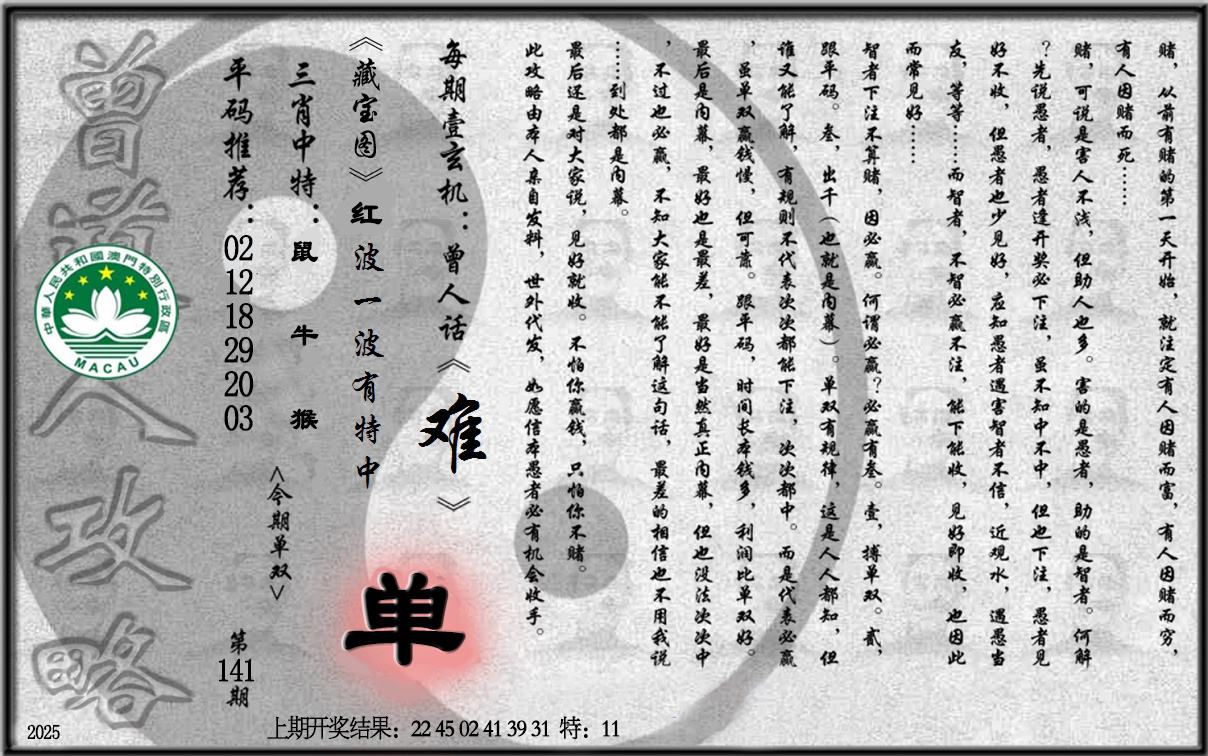 赌，从前有赌的第一天开始，就注定有人因赌而富，有人因赌而穷，
有人因赌而死……
赌，可说是害人不浅，但助人也多。害的是愚者，助的是智者。何解
？先说愚者，愚者逢开奖必下注，虽不知中不中，但也下注，愚者见
好不收，但愚者也少见好，应知愚者遇害智者不信，近观水，遇愚当
友，等等……而智者，不智必赢不注，能下能收，见好即收，也因此
而常见好……
智者下注不算赌，因必赢。何谓必赢？必赢有叁。壹，搏单双。贰，
跟平码。叁，出千（也就是内幕）。单双有规律，这是人人都知，但
谁又能了解，有规则不代表次次都能下注，次次都中。而是代表必赢
，虽单双赢钱慢，但可靠。跟平码，时间长本钱多，利润比单双好。
最后是内幕，最好也是最差，最好是当然真正内幕，但也没法次次中
，不过也必赢，不知大家能不能了解这句话，最差的相信也不用我说
……到处都是内幕。
最后还是对大家说，见好就收。不怕你赢钱，只怕你不赌。
此攻略由本人亲自发料，世外代发，如愿信本愚者必有机会收手。
每期壹玄机：曾人话《难》
《藏宝图》红波一波有特中
单
三肖中特：鼠 牛 猴
<今期单双>
平码推荐：02 12 18 29 20 03
第141期
曾道人攻略
中華人民共和國澳門特別行政區
MACAU
2025
上期开奖结果：22 45 02 41 39 31 特：11